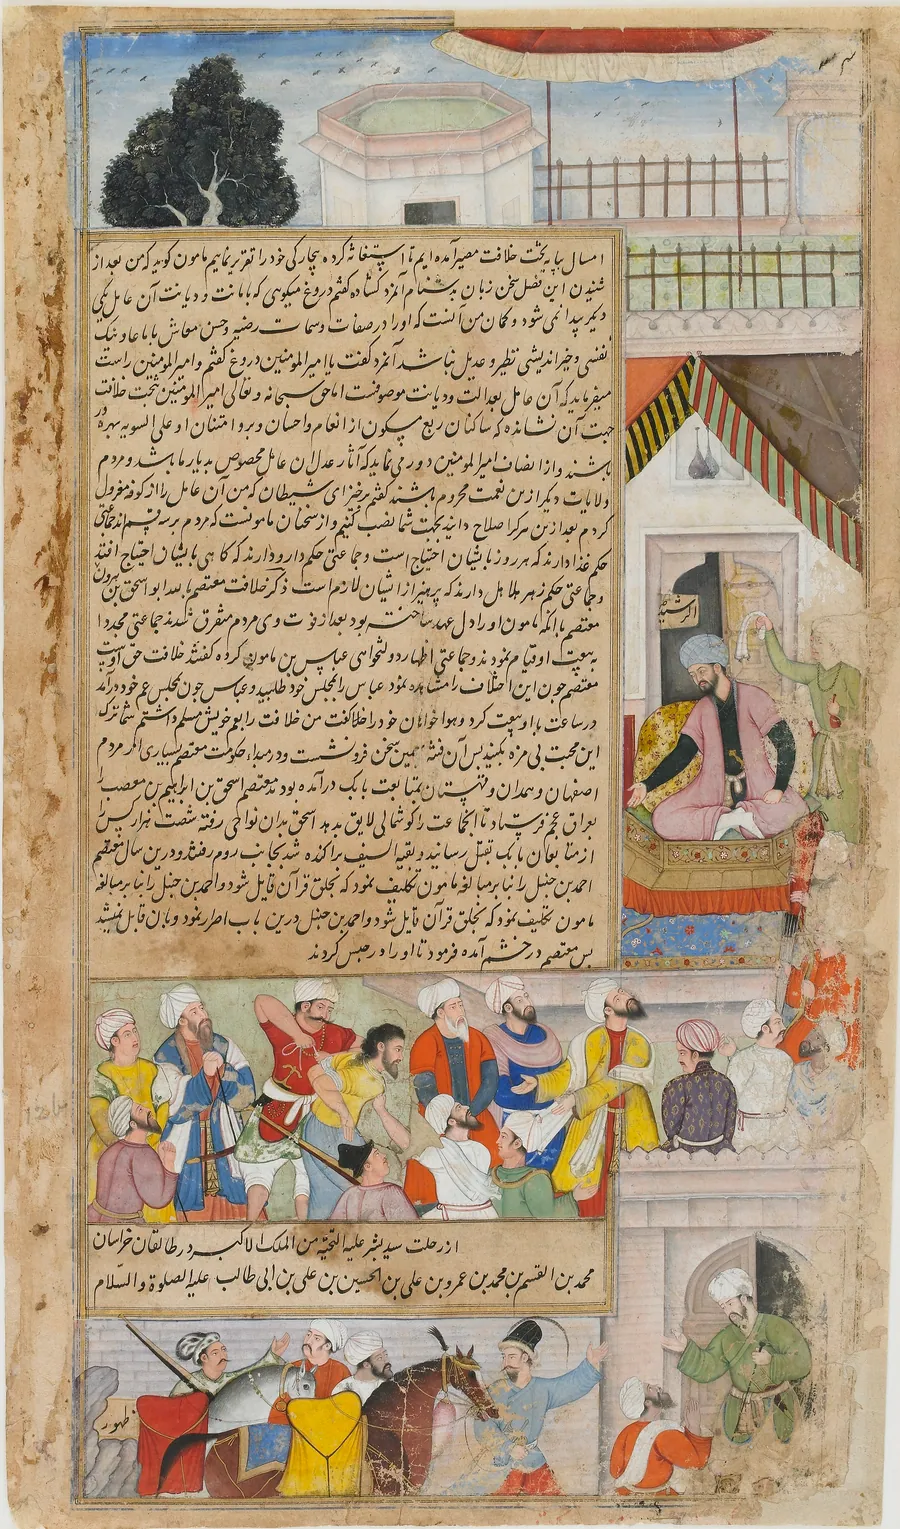 امسال بپایه تخت خلافت مصیر آمده ایم تا استغاثه کرده بیچارگی خود را تقریر نماییم مامون گوید که من بعد از
شنیدن این فصل سخن زبان بدشنام آنمرد گشاده گفتم دروغ میگویی که بامانت و دیانت آن عامل یکی
دیگر پیدا نمی شود و گمان من آنست که او را در صفات و سمات رضیه و حسن معاش با رعایا و نیک
نفسی و خیراندیشی نظیر و عدیل نباشد آنمرد گفت یا امیرالمومنین دروغ گفتم و امیرالمومنین راست
میفرماید که آن عامل بعدالت و دیانت موصوفست اما حق سبحانه و تعالی امیرالمومنین را بتخت خلافت
جهت آن نشانده که ساکنان ربع مسکون از انعام و احسان و بر و امتنان او علی السویه بهره ور
باشند و از انصاف امیرالمومنین دور می نماید که آثار عدل آن عامل مخصوص بدیار ما باشد و مردم
ولایات دیگر ازین نعمت محروم باشند گفتم برخیز ای شیطان که من آن عامل را از کوفه معزول
کردم بعد ازین هر کرا صلاح دانید بجهت شما نصب کنیم و از سخنان مامونست که مردم بر سه قسم اند جماعتی
حکم غذا دارند که هر روز بایشان احتیاج است و جماعتی حکم دارو دارند که گاهی بایشان احتیاج افتد
و جماعتی حکم زهر هلاهل دارند که پرهیز از ایشان لازم است ذکر خلافت معتصم بالله ابو اسحق بن هرون
معتصم با آنکه مامون او را ولی عهد ساخته بود بعد از فوت وی مردم متفرق شدند جماعتی مجددا
به بیعت او قیام نمودند و جماعتی اظهار دولتخواهی عباس بن مامون کرده گفتند خلافت حق اوست
معتصم چون این اختلاف را مشاهده نمود عباس را بمجلس خود طلبید و عباس چون بمجلس عم خود درآمد
در ساعت با او بیعت کرد و هواخواهان خود را گفت من خلافت را بعم خویش مسلم داشتم شما ترک
این محبت بی مزه بکنید پس آن فتنه بهمین سخن فرو نشست و در مبداء حکومت معتصم بسیاری از مردم
اصفهان و همدان و قهستان بمتابعت بابک درآمده بودند معتصم اسحق بن ابراهیم بن مصعب را
بعراق عجم فرستاد تا آنجماعت را گوشمالی لایق بدهد اسحق بدان نواحی رفته شصت هزار کس را
از متابعان بابک بقتل رسانید و بقیه السیف پراکنده شده بجانب روم رفتند و درین سال معتصم
احمد بن حنبل را بنا بر مبالغه مامون تکلیف نمود که بخلق قرآن قایل شود و احمد بن حنبل را بنا بر مبالغه
مامون تکلیف نمود که بخلق قرآن قایل شود و احمد بن حنبل درین باب اصرار نمود و بآن قایل نمیشد
پس معتصم در خشم آمده فرمود تا او را در حبس کردند
از رحلت سید بشر علیه التحیة من الملک الاکبر در طالقان خراسان
محمد بن القسم بن محمد بن عمرو بن علی بن الحسین بن علی بن ابی طالب علیه الصلوة والسلام